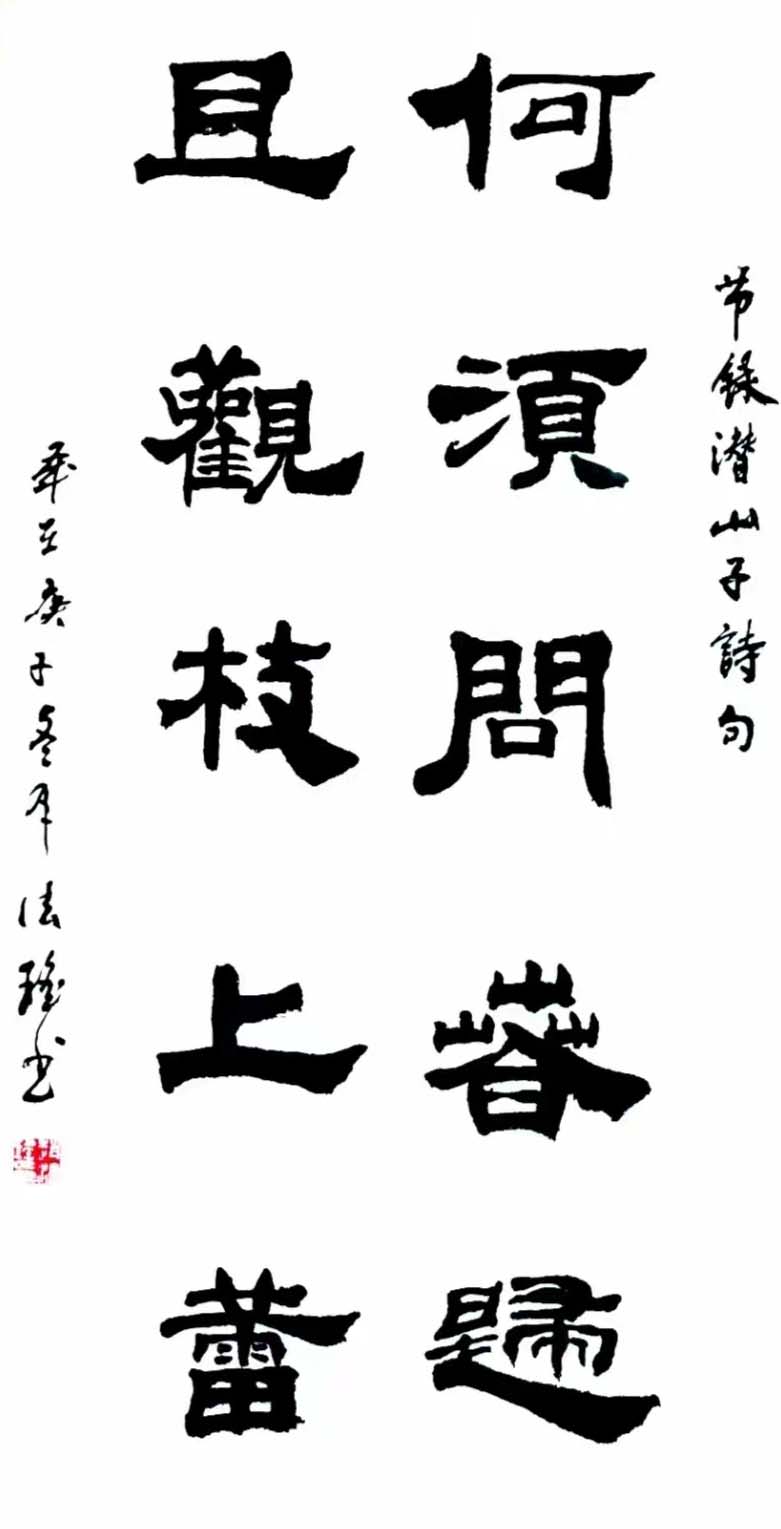 节録潜山子詩句
何須問春歸
且觀枝上蕾
歲在庚子冬月法瑤书